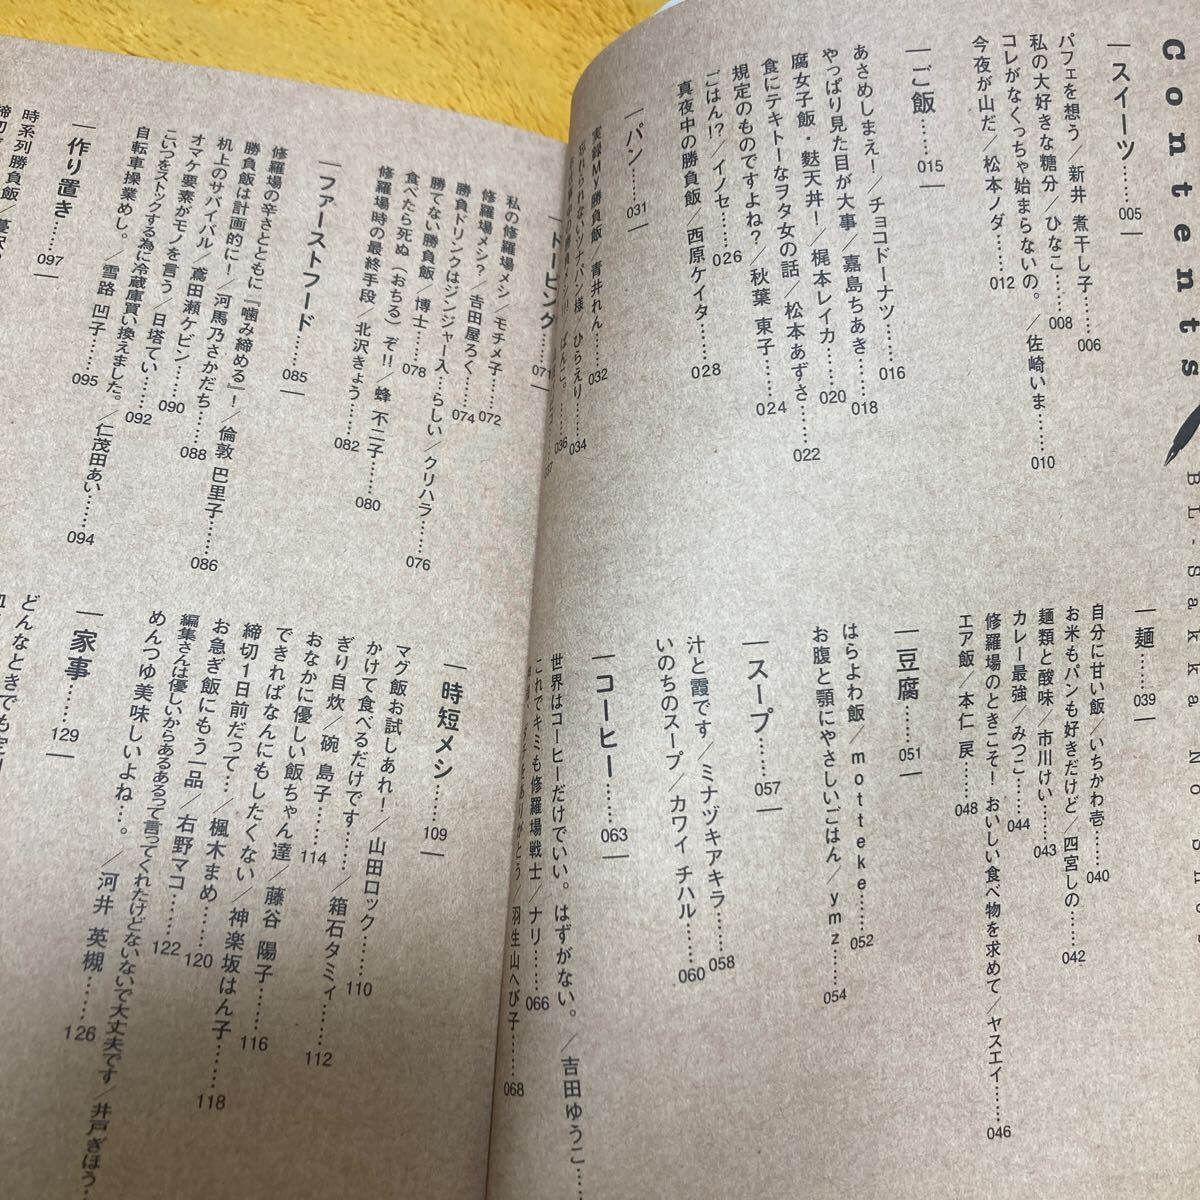 Contents
BL-sakka No sh
スイーツ……005
パフェを想う／新井 煮干し子……006
私の大好きな糖分／ひなこ……008
コレがなくっちゃ始まらないの。／佐崎いま……010
今夜が山だ／松本ノダ……012
ご飯……015
あさめしまえ！／チョコドーナツ……016
やっぱり見た目が大事／嘉島ちあき……018
腐女子飯・麩天丼！／梶本レイカ……020
食にテキトーなヲタ女の話／松本あずさ……022
規定のものですよね？／秋葉 東子……024
ごはん！？／イノセ……026
真夜中の勝負飯／西原ケイタ……028
パン……031
実録MV勝負飯 青井れん……032
忘れられないツナパン様／ひらえり……034
ぱんこ。……036
麺……039
自分に甘い飯／いちかわ壱……040
お米もパンも好きだけど／四宮しの……042
麺類と酸味／市川けい……043
カレー最強／みつこ……044
修羅場のときこそ！おいしい食べ物を求めて／ヤスエイ……046
エア飯／本仁 戻……048
豆腐……051
はらよわ飯／motteke……052
お腹と顎にやさしいごはん／ymz……054
スープ……057
汁と霞です／ミナヅキアキラ……058
いのちのスープ／カワイ チハル……060
コーヒー……063
世界はコーヒーだけでいい。はずがない。／吉田ゆうこ……
これでキミも修羅場戦士／ナリ……066
をありがとう／羽生山へび子……068
ドーピング……071
私の修羅場メシ／モチメ子……072
修羅場メシ？／吉田屋ろく……074
勝負ドリンクはジンジャー入……らしい／クリハラ……076
勝てない勝負飯／博士……078
食べたら死ぬ（おちる）ぞ！！／蜂 不二子……080
修羅場時の最終手段／北沢きょう……082
ファーストフード……085
修羅場の辛さとともに『噛み締める』！／倫敦 巴里子……086
勝負飯は計画的に！／河馬乃さかだち……088
机上のサバイバル／鳶田瀬ケビン……090
オマケ要素がモノを言う／日塔てい……092
こいつをストックする為に冷蔵庫買い換えました。／仁茂田あい……094
自転車操業めし。／雪路 凹子……095
作り置き……097
時系列勝負飯／
時短メシ……109
マグ飯お試しあれ！／山田ロック……110
かけて食べるだけです……／箱石タミィ……112
ぎり自炊／碗 島子……114
おなかに優しい飯ちゃん達／藤谷 陽子……116
できればなんにもしたくない／神楽坂はん子……118
締切1日前だって…／楓木まめ……120
お急ぎ飯にもう一品／右野マコ……122
編集さんは優しいからあるあるって言ってくれたけどないないで大丈夫です／井戸ぎほう……
めんつゆ美味しいよね…。／河井 英槻……126
家事……129
どんなときでも定